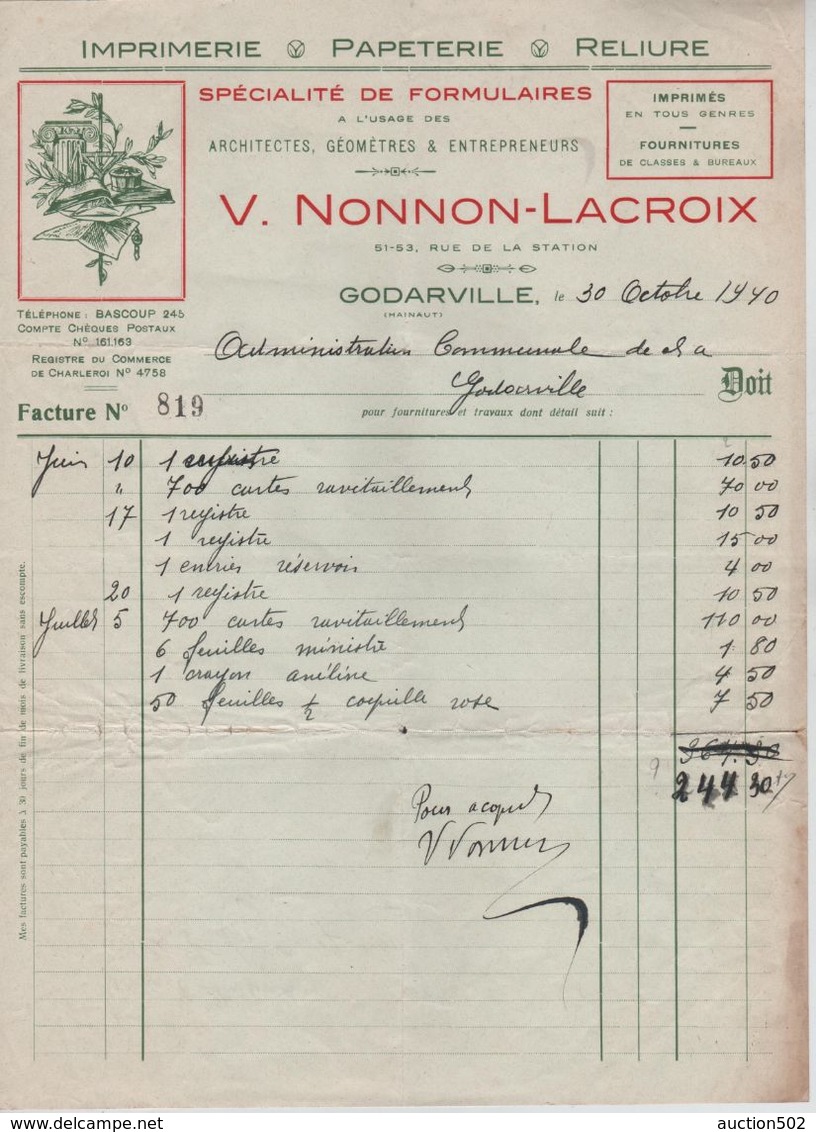 IMPRIMERIE PAPETERIE RELIURE
SPÉCIALITÉ DE FORMULAIRES
A L'USAGE DES
ARCHITECTES, GÉOMÈTRES & ENTREPRENEURS
IMPRIMÉS
EN TOUS GENRES
FOURNITURES
DE CLASSES & BUREAUX
V. NONNON-LACROIX
51-53, RUE DE LA STATION
GODARVILLE, le 30 Octobre 1940
(HAINAUT)
TÉLÉPHONE : BASCOUP 245
COMPTE CHÈQUES POSTAUX
N° 161.163
REGISTRE DU COMMERCE
DE CHARLEROI N° 4758
Administration Communale de et a
Godarville Doit
Facture N° 819
pour fournitures et travaux dont détail suit :
Juin 10 1 registre 10 50
" 700 cartes ravitaillement 70 00
17 1 registre 10 50
1 registre 15 00
1 encrier réservoir 4 00
20 1 registre 10 50
Juillet 5 700 cartes ravitaillement 110 00
6 feuilles ministre 1 80
1 crayon aniline 4 50
50 feuilles 1/2 coquille rose 7 50
244 30
Pour acquit
V Nonnon
Mes factures sont payables à 30 jours de fin de mois de livraison sans escompte.
auction502